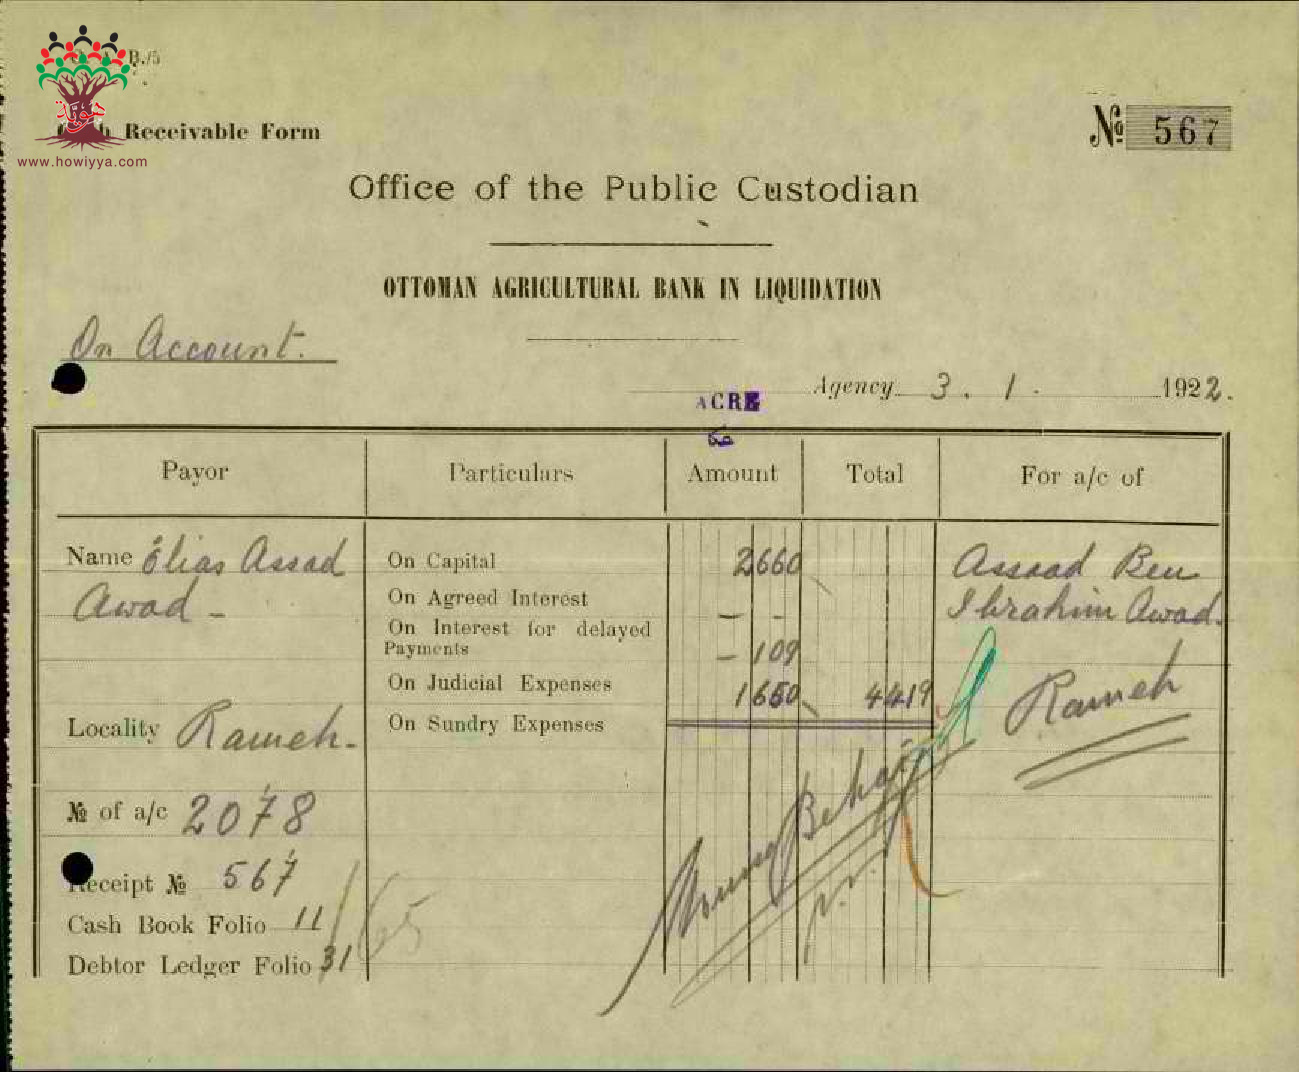 B./5
هوية
Receivable Form
www.howiyya.com
Nº 567
Office of the Public Custodian
OTTOMAN AGRICULTURAL BANK IN LIQUIDATION
On Account.
ACRE Agency 3. 1. 1922.
Payor Particulars Amount Total For a/c of
Name Elias Assad On Capital 2660 Assaad Ben
Awad - On Agreed Interest - - Ibrahim Awad.
On Interest for delayed
Payments - 109
On Judicial Expenses 1650 4419 Rameh
Locality Rameh. On Sundry Expenses
№ of a/c 2078
Receipt № 567
Cash Book Folio 11 / 65
Debtor Ledger Folio 31